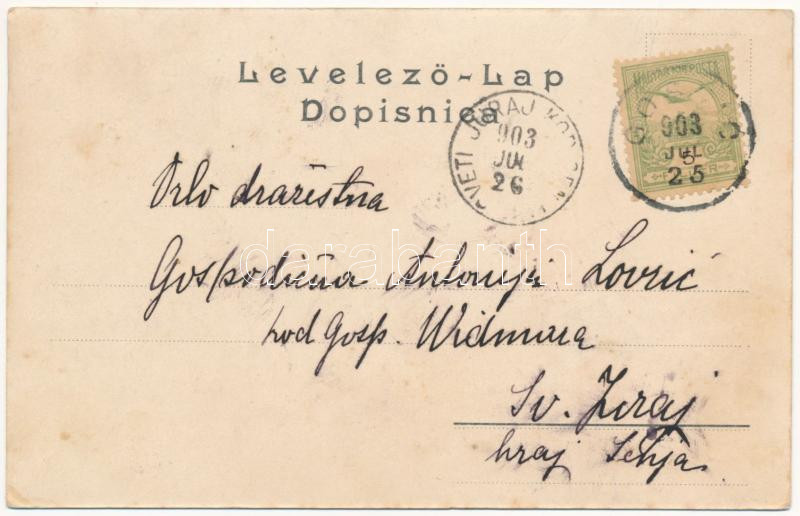 Levelező-Lap
Dopisnica
MAGYAR KIR. POSTA
903
JUL
25
5
SVETI JURAJ KOD SEN
903
JUL
26
Vrlo dražestna
Gospodična Antonija Lovrić
kod Gosp. Widmara
Sv. Juraj
kraj Senja
darabanth